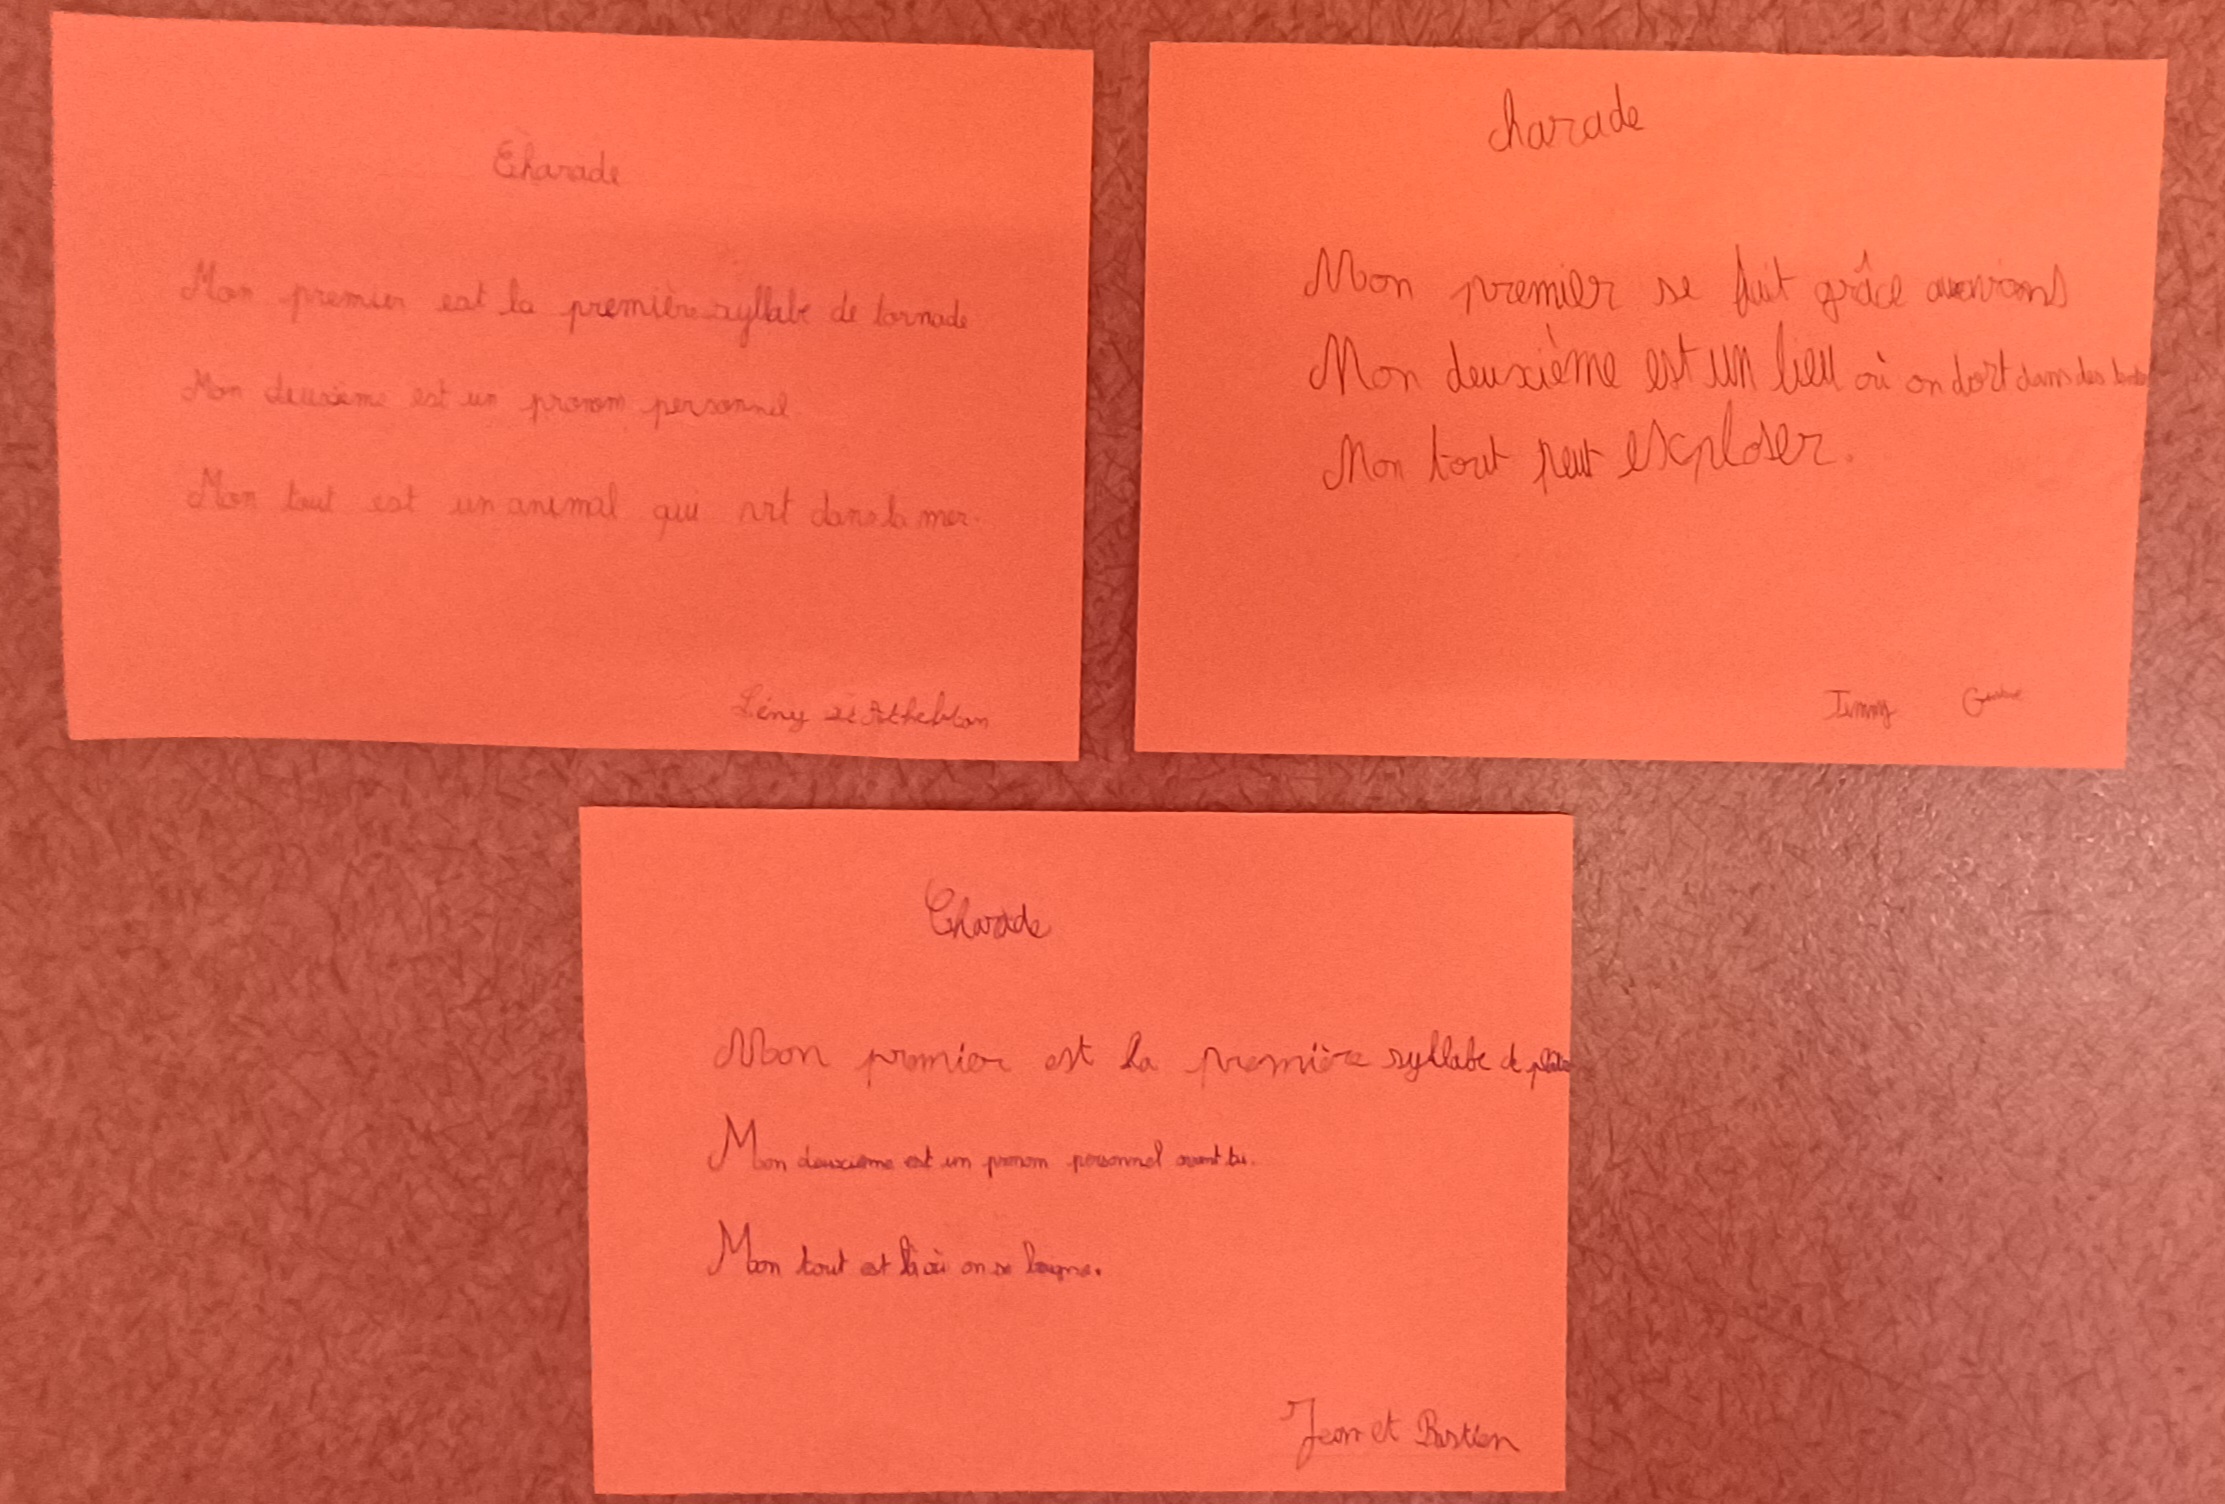 Charade
Mon premier est la première syllabe de tornade
Mon deuxième est un pronom personnel.
Mon tout est un animal qui vit dans la mer.
Lény et
charade
Mon premier se fait grâce
Mon deuxième est un lieu où on dort dans des
Mon tout peut exploser.
Jimmy
Charade
Mon premier est la première syllabe de
Mon deuxième est un pronom personnel avant tu.
Mon tout est là où on se baigne.
Jean et Bastien